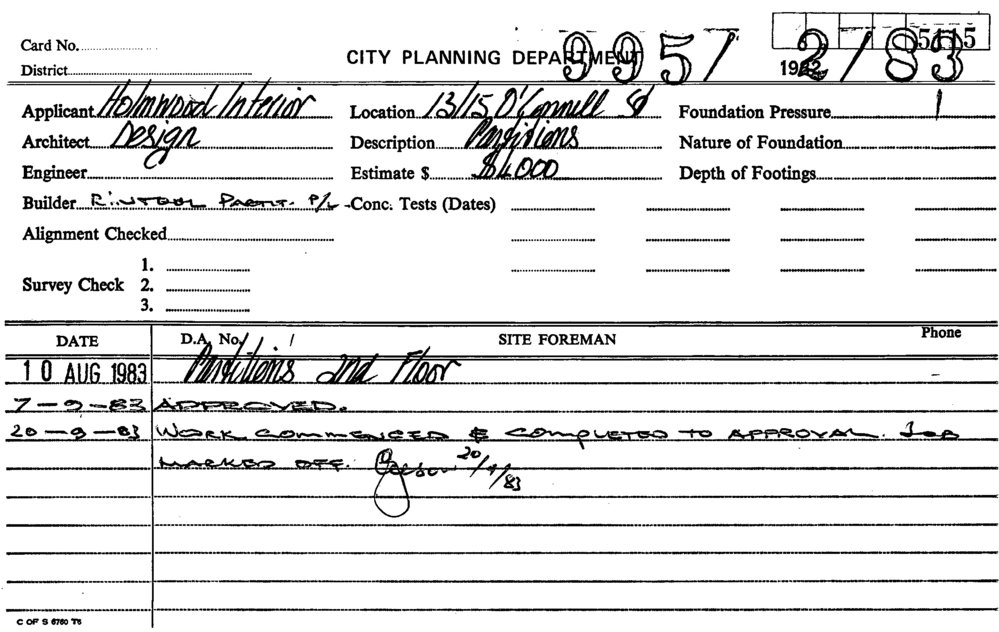 Card No.
CITY PLANNING DEPARTMENT 9957 2/83 5115
District 1982
Applicant Holmwood Interior Location 13/15 O'Connell St Foundation Pressure
Architect Design Description Partitions Nature of Foundation
Engineer Estimate $ $4000 Depth of Footings
Builder Rintoul Partit. P/L Conc. Tests (Dates)
Alignment Checked
1.
Survey Check 2.
3.
DATE D.A. No. SITE FOREMAN Phone
10 AUG 1983 Partitions 2nd Floor -
7-9-83 APPROVED.
20-9-83 WORK COMMENCED & COMPLETED TO APPROVAL. JOB
MARKED OFF. 20/9/83
C OF S 6760 T6